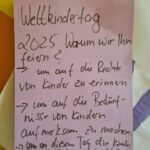 Weltkindertag
2025 Warum wir Ihn
feiern?
→ um auf die Rechte
von Kinder zu erinnern
→ um auf die Bedürf-
nisse von Kindern
aufmerksam zu machen.
→ um an diesem Tag die Kinder